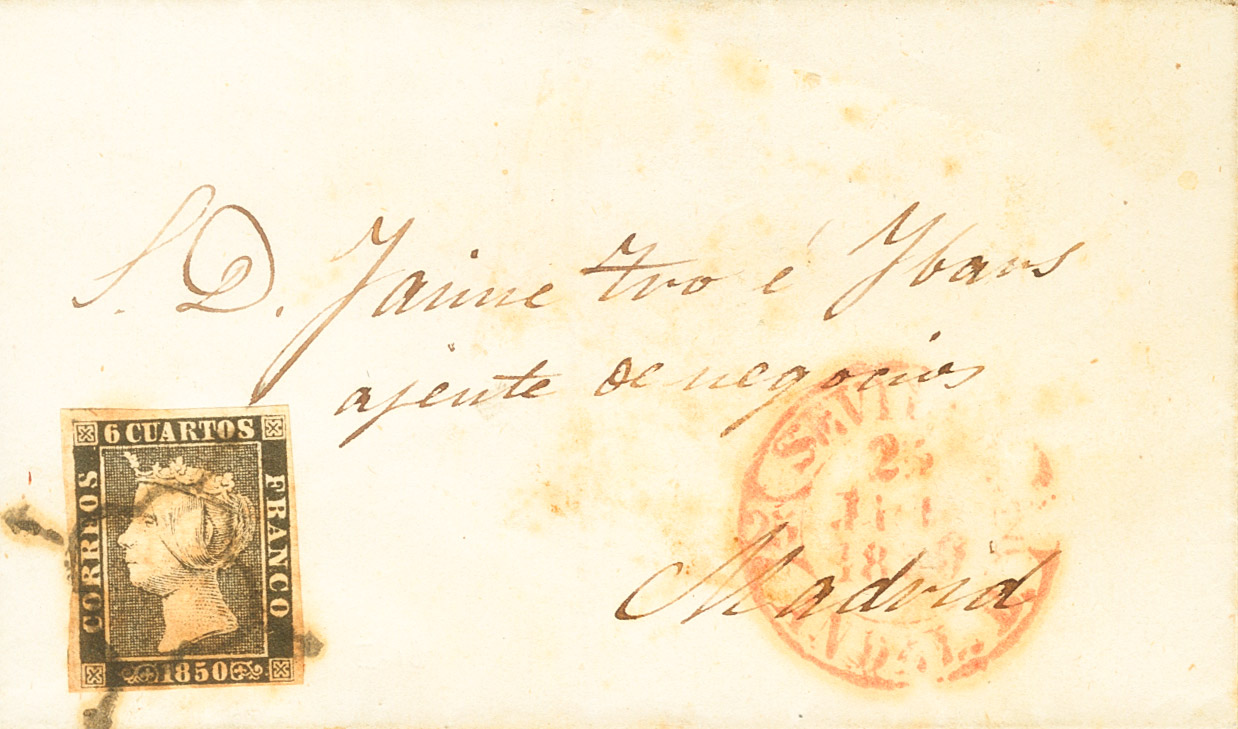 S. D. Jaime Tro é Ybars
ajente de negocios
Madrid
6 CUARTOS
CORREOS
FRANCO
1850
SEVI
25
18